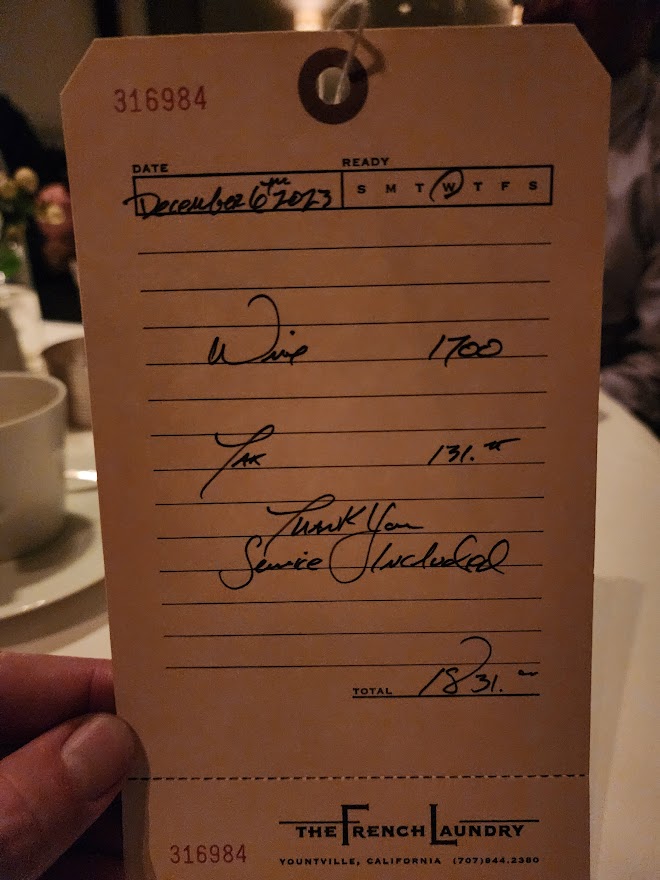 316984
DATE READY
December 6TH 2023 S M T W T F S
Wine 1700
Tax 131.
Thank You
Service Included
TOTAL 1831.
THE FRENCH LAUNDRY
316984 YOUNTVILLE, CALIFORNIA (707)944.2380